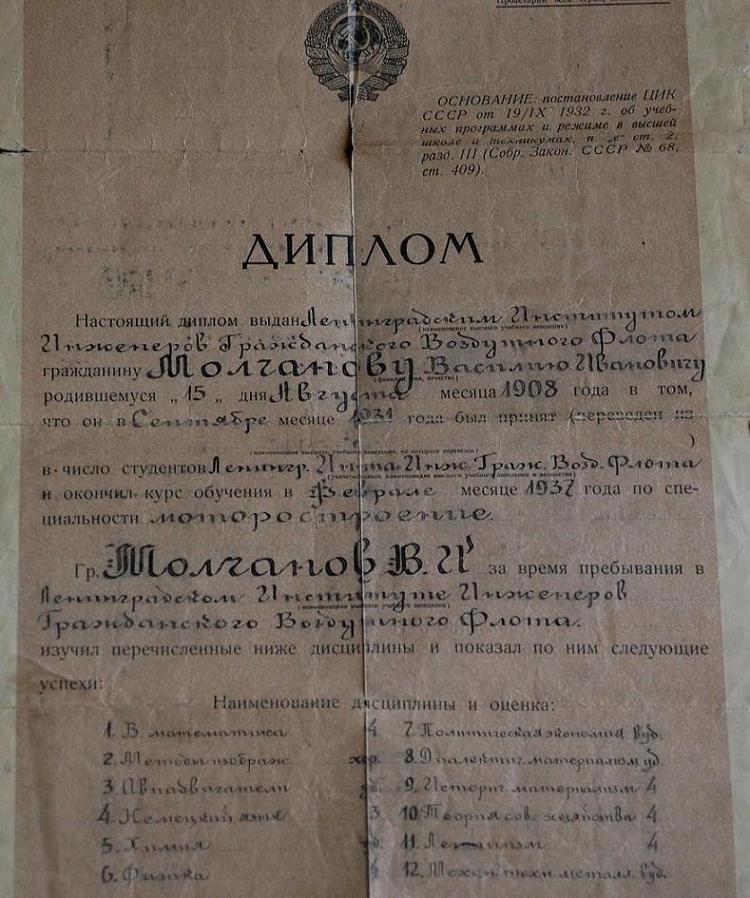 Пролетарии всех стран,
ОСНОВАНИЕ: постановление ЦИК
СССР от 19/IX 1932 г. об учеб-
ных программах и режиме в высшей
школе и техникумах, п. „е" ст. 2,
разд. III (Собр. Закон. СССР № 68,
ст. 409).
ДИПЛОМ
Настоящий диплом выдан Ленинградским Институтом
(наименование высшего учебного заведения)
Инженеров Гражданского Воздушного Флота
гражданину Молчанову Василию Ивановичу
родившемуся „15„ дня Августа месяца 1908 года в том,
что он в Сентябре месяце 1931 года был принят (переведен из
)
в число студентов Ленингр. Ин-та Инж. Граж. Возд. Флота
и окончил курс обучения в Феврале месяце 1937 года по спе-
циальности моторостроение.
Гр. Молчанов В. И за время пребывания в
Ленинградском Институте Инженеров
(наименование высшего учебного заведения)
Гражданского Воздушного Флота.
изучил перечисленные ниже дисциплины и показал по ним следующие
успехи:
Наименование дисциплины и оценка:
1. В. математика 4 7. Политическая экономия вуд.
2. Методы изображ. хор. 8. Диалектич. материализм уд.
3. Авиадвигатели 9. Историч. материализм 4
4. Немецкий язык 3 10. Теория сов. хозяйства 4
5. Химия 11. Ленинизм 4
6. Физика 4 12. Механ. техн. металл. вуд.